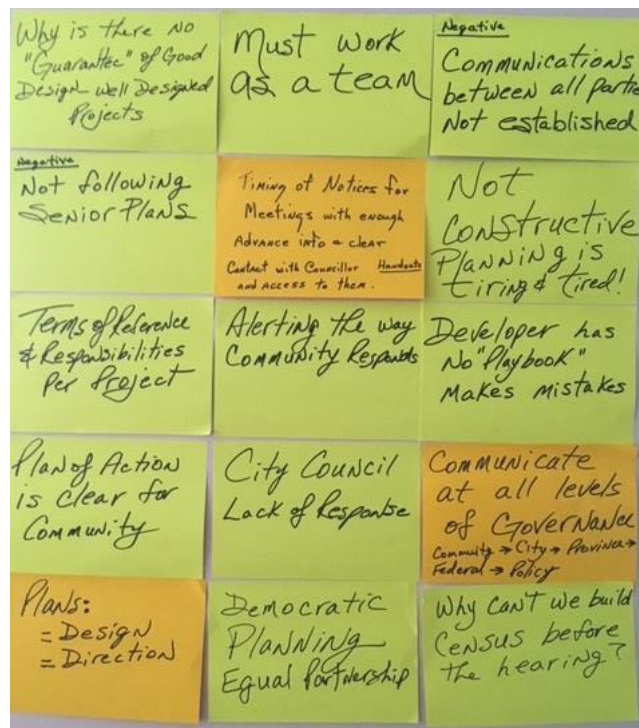 Why is there no
"Guarantee" of Good
Design well Designed
Projects
Must work
as a team
Negative
Communications
between all partie
Not established
Negative
Not following
Senior Plans
Timing of Notices for
Meetings with enough
Advance info & clear
Contact with Councillor Handouts
and access to them.
Not
Constructive
Planning is
tiring & tired!
Terms of Reference
& Responsibilities
Per Project
Alerting the way
Community Responds
Developer has
No "Playbook"
makes mistakes
Plan of Action
is clear for
Community
City Council
Lack of Response
Communicate
at all levels
of Governance
Community → City → Province →
Federal → Policy
Plans:
= Design
= Direction
Democratic
Planning
Equal Partnership
Why can't we build
Census before
the hearing?